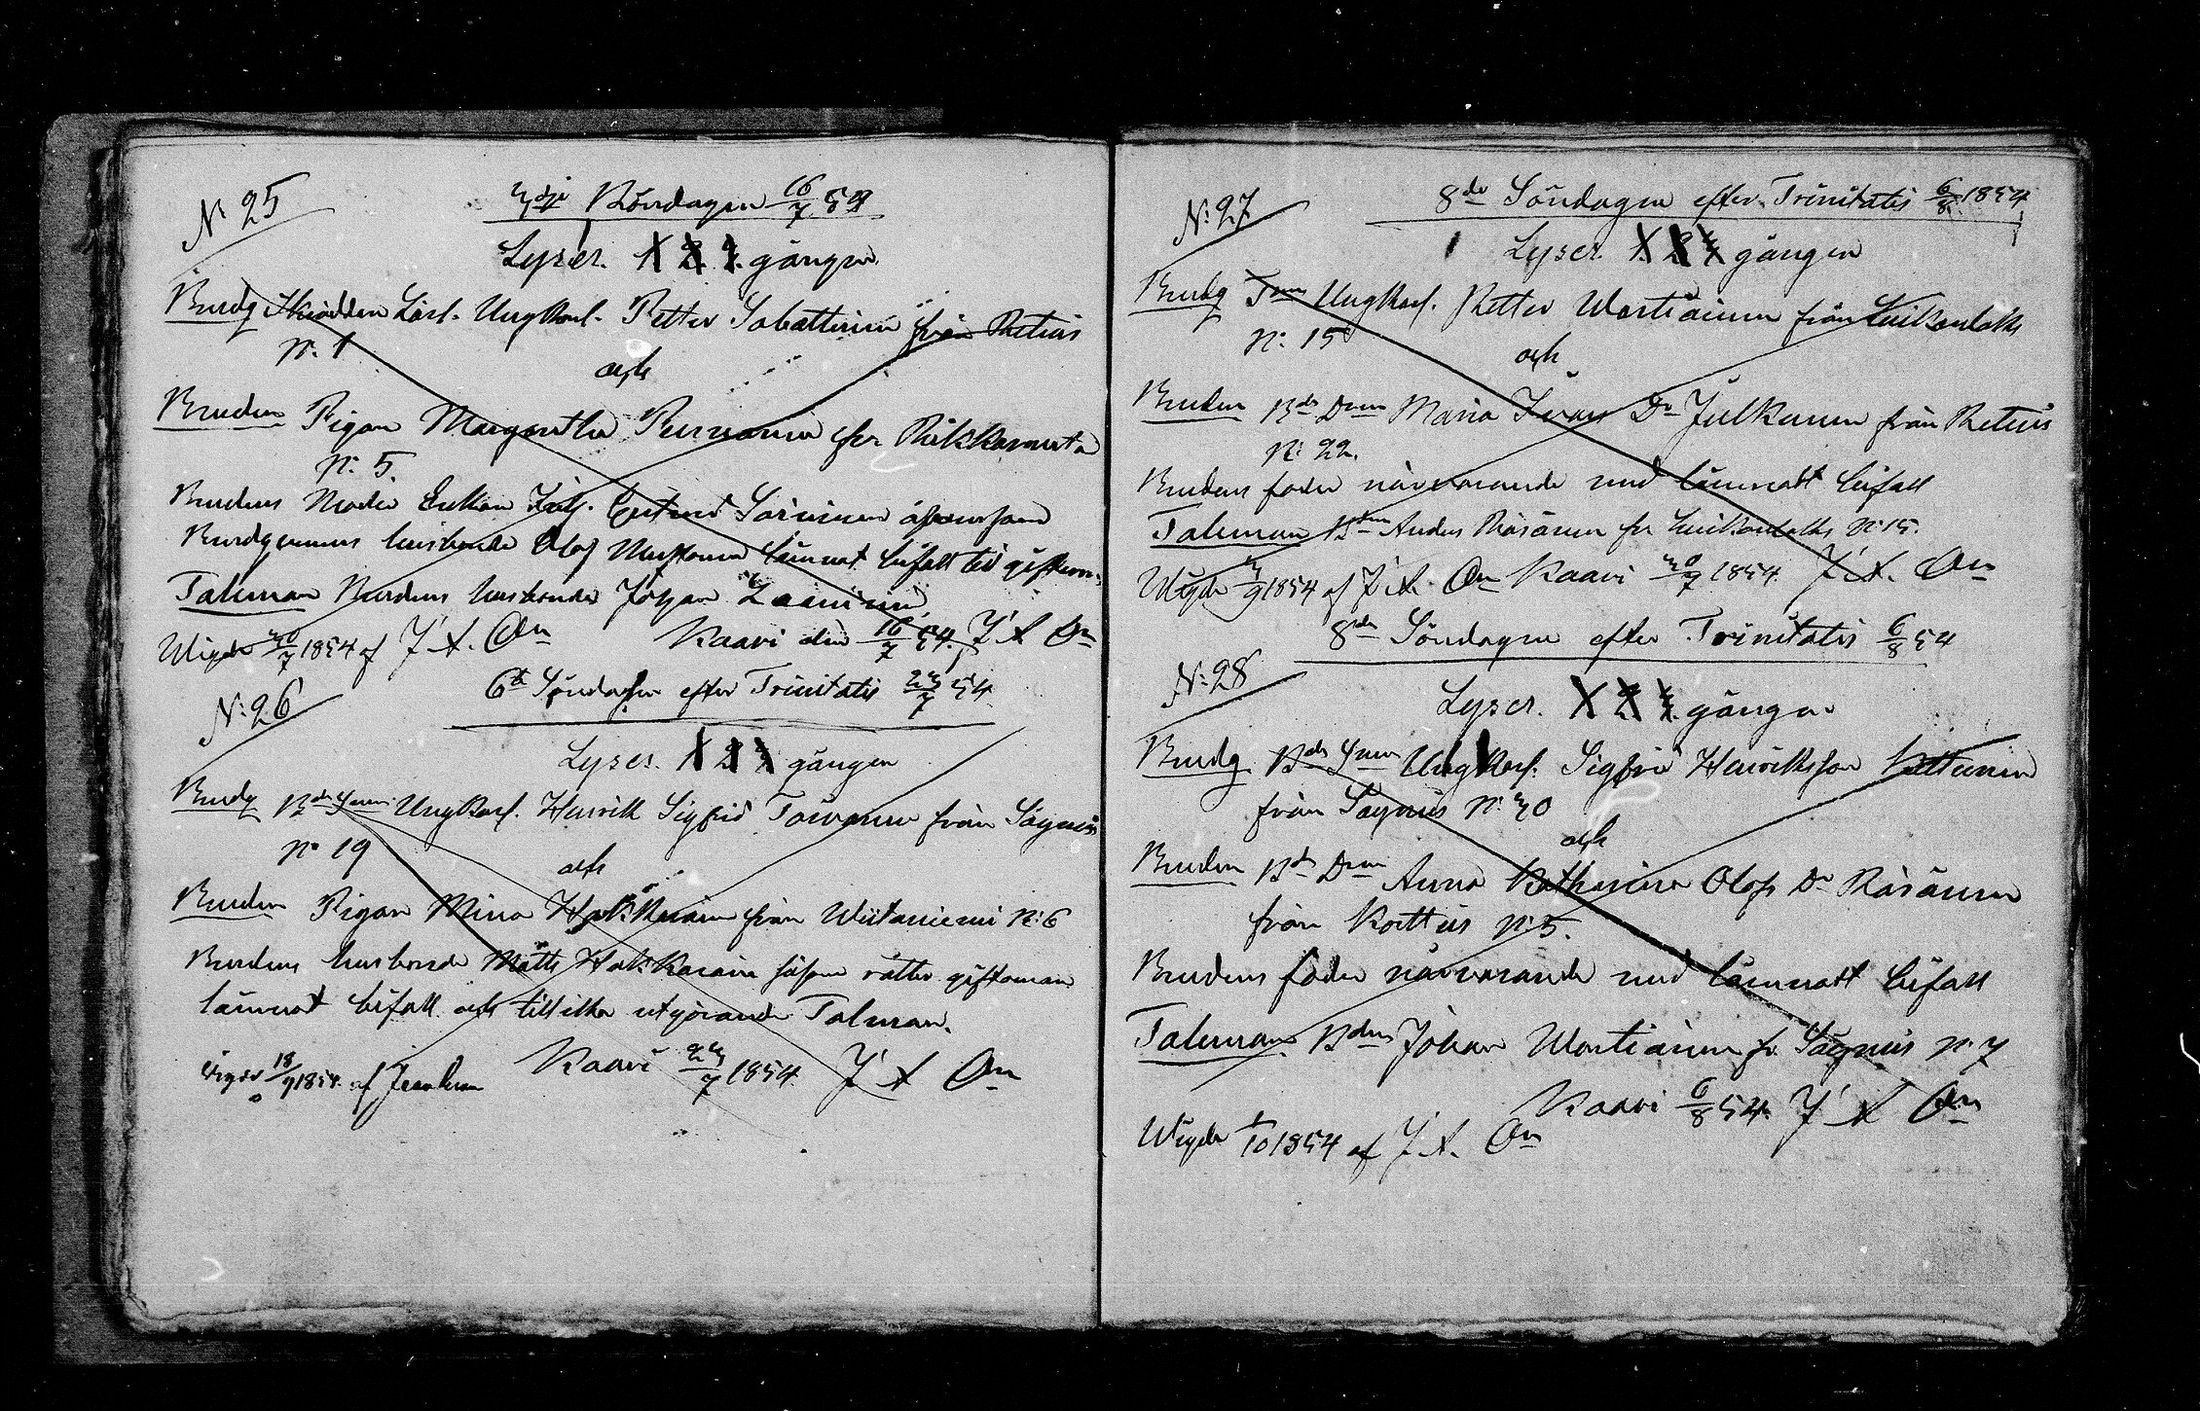 N: 25
3dje Böndagen 16/7 54
Lyses. 1 2 3. gången.
Brudg Skrädden Lärl. Ungkarl. Petter Sabattinen från Retuis
N: 1
och
Bruden Pigan Margaretha Purnonen från Rikkaranta
N: 5.
Brudens Moder Enkan Gertrud Sorninen äfvensom
Brudgummens husbonde Olof Mustonen lämnat bifall till giftermå
Taleman Brudens husbonde Johan Laaninen
Wigde 30/7 1854 af J. A. On Kaavi den 16/7 54. J A On
N: 26
6te Söndagen efter Trinitatis 23/7 54.
Lyses. 1 2 3 gången
Brudg Bde Snn Ungkarl. Henrik Sigfrid Toivanen från Sägnäs
N: 19
och
Bruden Pigan Mina Hakkarain från Wiitaniemi N: 6
Brudens husbonde Matts Hakkarain såsom rätter giftoman
lämnat bifall och tillika utgörande Talman.
Wigde 18/9 1854 af Kaavi 23/7 1854. J A On
N: 27
8de Söndagen efter Trinitatis 6/8 1854
Lyses. 1. 2 3 gången
Brudg Ungkarl. Petter Wartiainen från Luikonlaks
N: 15
och
Bruden Bde Dnn Maria Ivars Dr Julkunen från Retuis
N: 22.
Brudens fader närvarande med lämnatt bifall
Taleman Bden Anders Räsänen fr Luikonlaks N: 15.
Wigde 3/9 1854 af J. A. On Kaavi 30/7 1854. J. A. On
8de Söndagen efter Trinitatis 6/8 54
N: 28
Lyses. 1 2 3. gången
Brudg Bde Snn Ungkarl. Sigfrid Henriksson Kettunen
från Sägnäs N: 30
och
Bruden Bde Dnn Anna Katharina Olofs Dr Räsänen
från Kortteis N: 5.
Brudens fader närvarande med lämnatt bifall
Talemans Bden Johan Wartiainen fr. Sägnäs N: 7
Kaavi 6/8 54. J A On
Wigde 1/10 1854 af J. A. On